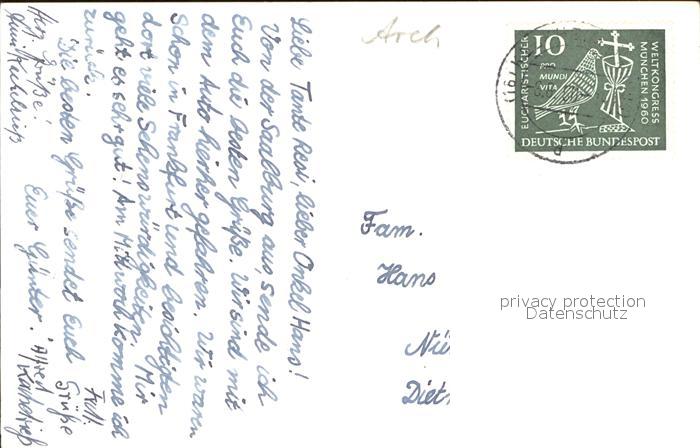 Liebe Tante Resi, lieber Onkel Hans!
Von der Saalburg aus, sende ich
Euch die besten Grüße. Wir sind mit
dem Auto hierher gefahren. Wir waren
schon in Frankfurt und besichtigten
dort viele Sehenswürdigkeiten. Mir
geht es sehr gut! Am Mittwoch komme ich
zurück.
Die besten Grüße sendet Euch
Euer Günter.
Frdl. Grüße
Alfred
Hrz. Grüße!
Arch
EUCHARISTISCHER
WELTKONGRESS
MÜNCHEN 1960
10
PRO
MUNDI
VITA
DEUTSCHE BUNDESPOST
Fam.
Hans
Nü
Diet
privacy protection
Datenschutz